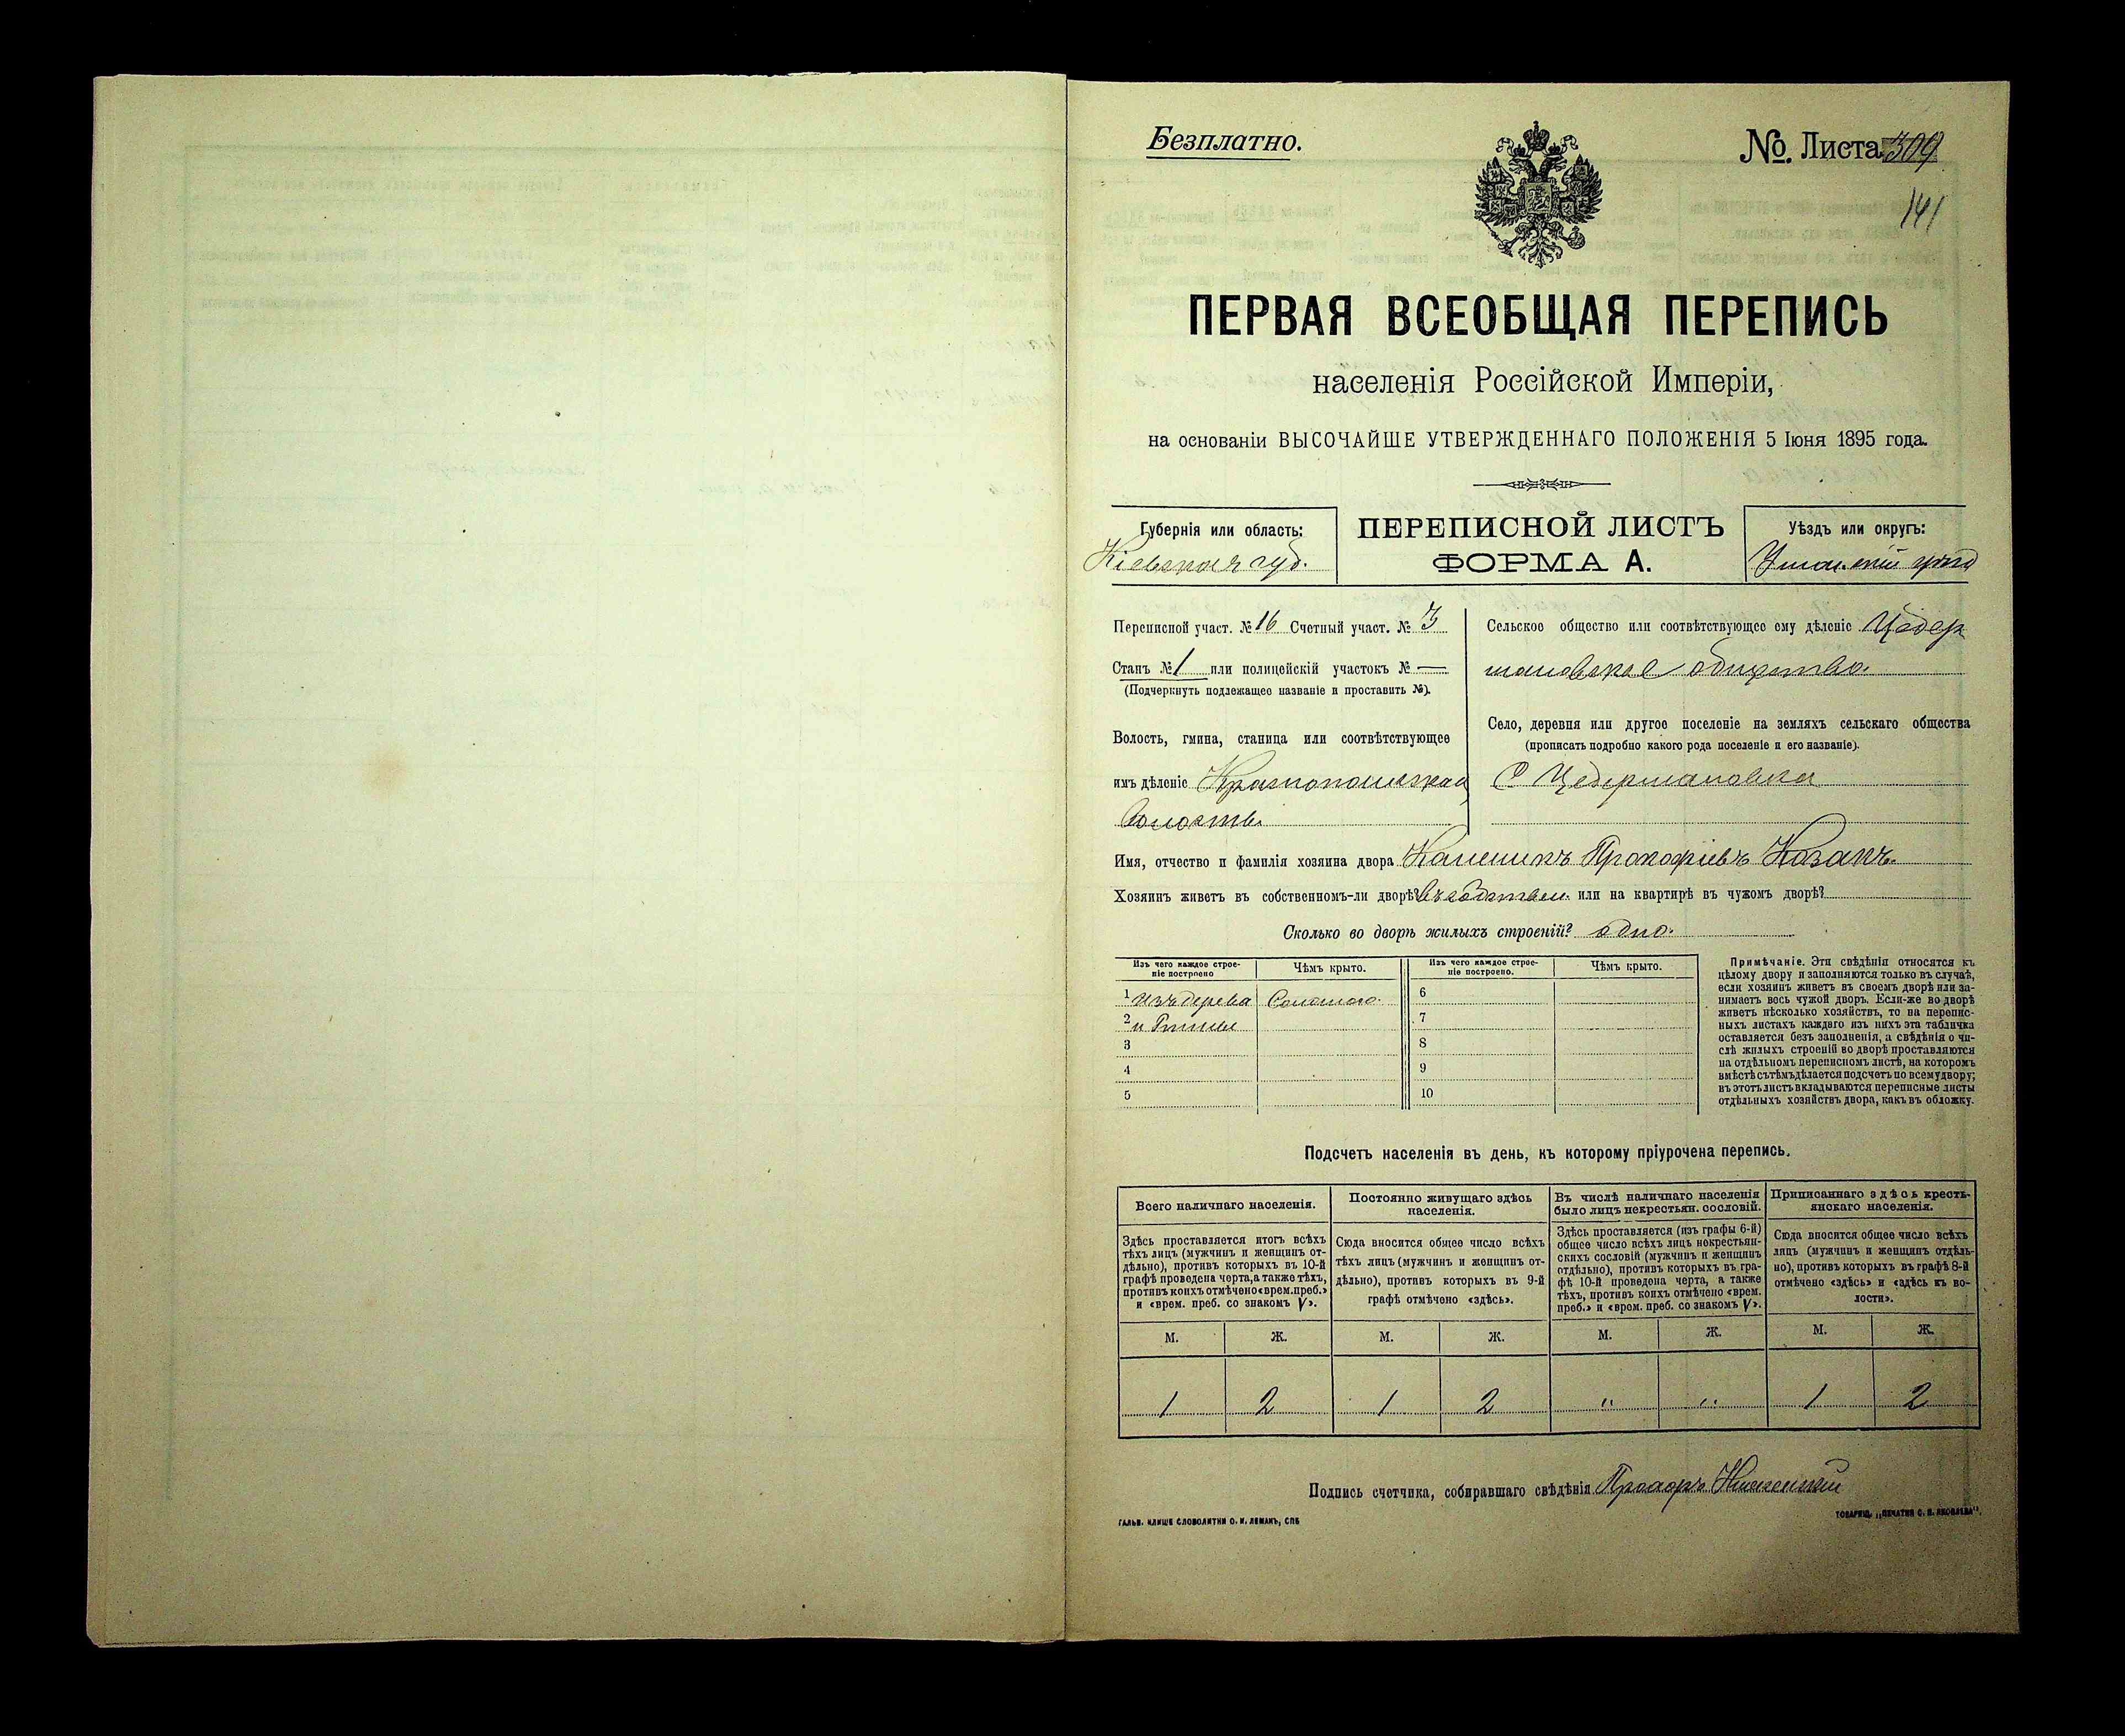 Безплатно.
№. Листа 309
141
ПЕРВАЯ ВСЕОБЩАЯ ПЕРЕПИСЬ
населенія Россійской Имперіи,
на основаніи ВЫСОЧАЙШЕ УТВЕРЖДЕННАГО ПОЛОЖЕНІЯ 5 Іюня 1895 года.
Губернія или область:
Кіевская губ.
ПЕРЕПИСНОЙ ЛИСТЪ
ФОРМА А.
Уѣздъ или округъ:
Уманскій уѣздъ
Переписной участ. № 16 Счетный участ. № 3
Станъ № 1 или полицейскій участокъ № —
(Подчеркнуть подлежащее названіе и проставить №).
Волость, гмина, станица или соотвѣтствующее
имъ дѣленіе Краснопольская
Волость.
Сельское общество или соотвѣтствующее ему дѣленіе Цедер
мановское общество.
Село, деревня или другое поселеніе на земляхъ сельскаго общества
(прописать подробно какого рода поселеніе и его названіе).
С Цедермановка
Имя, отчество и фамилія хозяина двора Прокофіевъ Козакъ.
Хозяинъ живетъ въ собственномъ-ли дворѣ? въ собствен. или на квартирѣ въ чужомъ дворѣ?
Сколько во дворѣ жилыхъ строеній? одно.
Изъ чего каждое строе-
ніе построено
Чѣмъ крыто.
Изъ чего каждое строе-
ніе построено.
Чѣмъ крыто.
1 Изъ дерева Соломою. 6
2 и Глины 7
3 8
4 9
5 10
Примѣчаніе. Эти свѣдѣнія относятся къ
цѣлому двору и заполняются только въ случаѣ,
если хозяинъ живетъ въ своемъ дворѣ или за-
нимаетъ весь чужой дворъ. Если-же во дворѣ
живетъ нѣсколько хозяйствъ, то на перепис-
ныхъ листахъ каждаго изъ нихъ эта табличка
оставляется безъ заполненія, а свѣдѣнія о чи-
слѣ жилыхъ строеній во дворѣ проставляются
на отдѣльномъ переписномъ листѣ, на которомъ
вмѣстѣ съ тѣмъ дѣлается подсчетъ по всему двору;
въ этотъ листъ вкладываются переписные листы
отдѣльныхъ хозяйствъ двора, какъ въ обложку.
Подсчетъ населенія въ день, къ которому пріурочена перепись.
Всего наличнаго населенія.
Здѣсь проставляется итогъ всѣхъ
тѣхъ лицъ (мужчинъ и женщинъ от-
дѣльно), противъ которыхъ въ 10-й
графѣ проведена черта, а также тѣхъ,
противъ коихъ отмѣчено «врем. преб.»
и «врем. преб. со знакомъ V».
Постоянно живущаго здѣсь
населенія.
Сюда вносится общее число всѣхъ
тѣхъ лицъ (мужчинъ и женщинъ от-
дѣльно), противъ которыхъ въ 9-й
графѣ отмѣчено «здѣсь».
Въ числѣ наличнаго населенія
было лицъ некрестьян. сословій.
Здѣсь проставляется (изъ графы 6-й)
общее число всѣхъ лицъ некрестьян-
скихъ сословій (мужчинъ и женщинъ
отдѣльно), противъ которыхъ въ гра-
фѣ 10-й проведена черта, а также
тѣхъ, противъ коихъ отмѣчено «врем.
преб.» и «врем. преб. со знакомъ V».
Приписаннаго здѣсь кресть-
янскаго населенія.
Сюда вносится общее число всѣхъ
лицъ (мужчинъ и женщинъ отдѣль-
но), противъ которыхъ въ графѣ 8-й
отмѣчено «здѣсь» и «здѣсь къ во-
лости».
М. Ж. М. Ж. М. Ж. М. Ж.
1 2 1 2 " " 1 2
Подпись счетчика, собиравшаго свѣдѣнія Прохоръ
ГАЛЬВ. КЛИШЕ СЛОВОЛИТНИ О. И. ЛЕМАНЪ, СПБ
ТОВАРИЩ. „ПЕЧАТНЯ С. П. ЯКОВЛЕВА“.